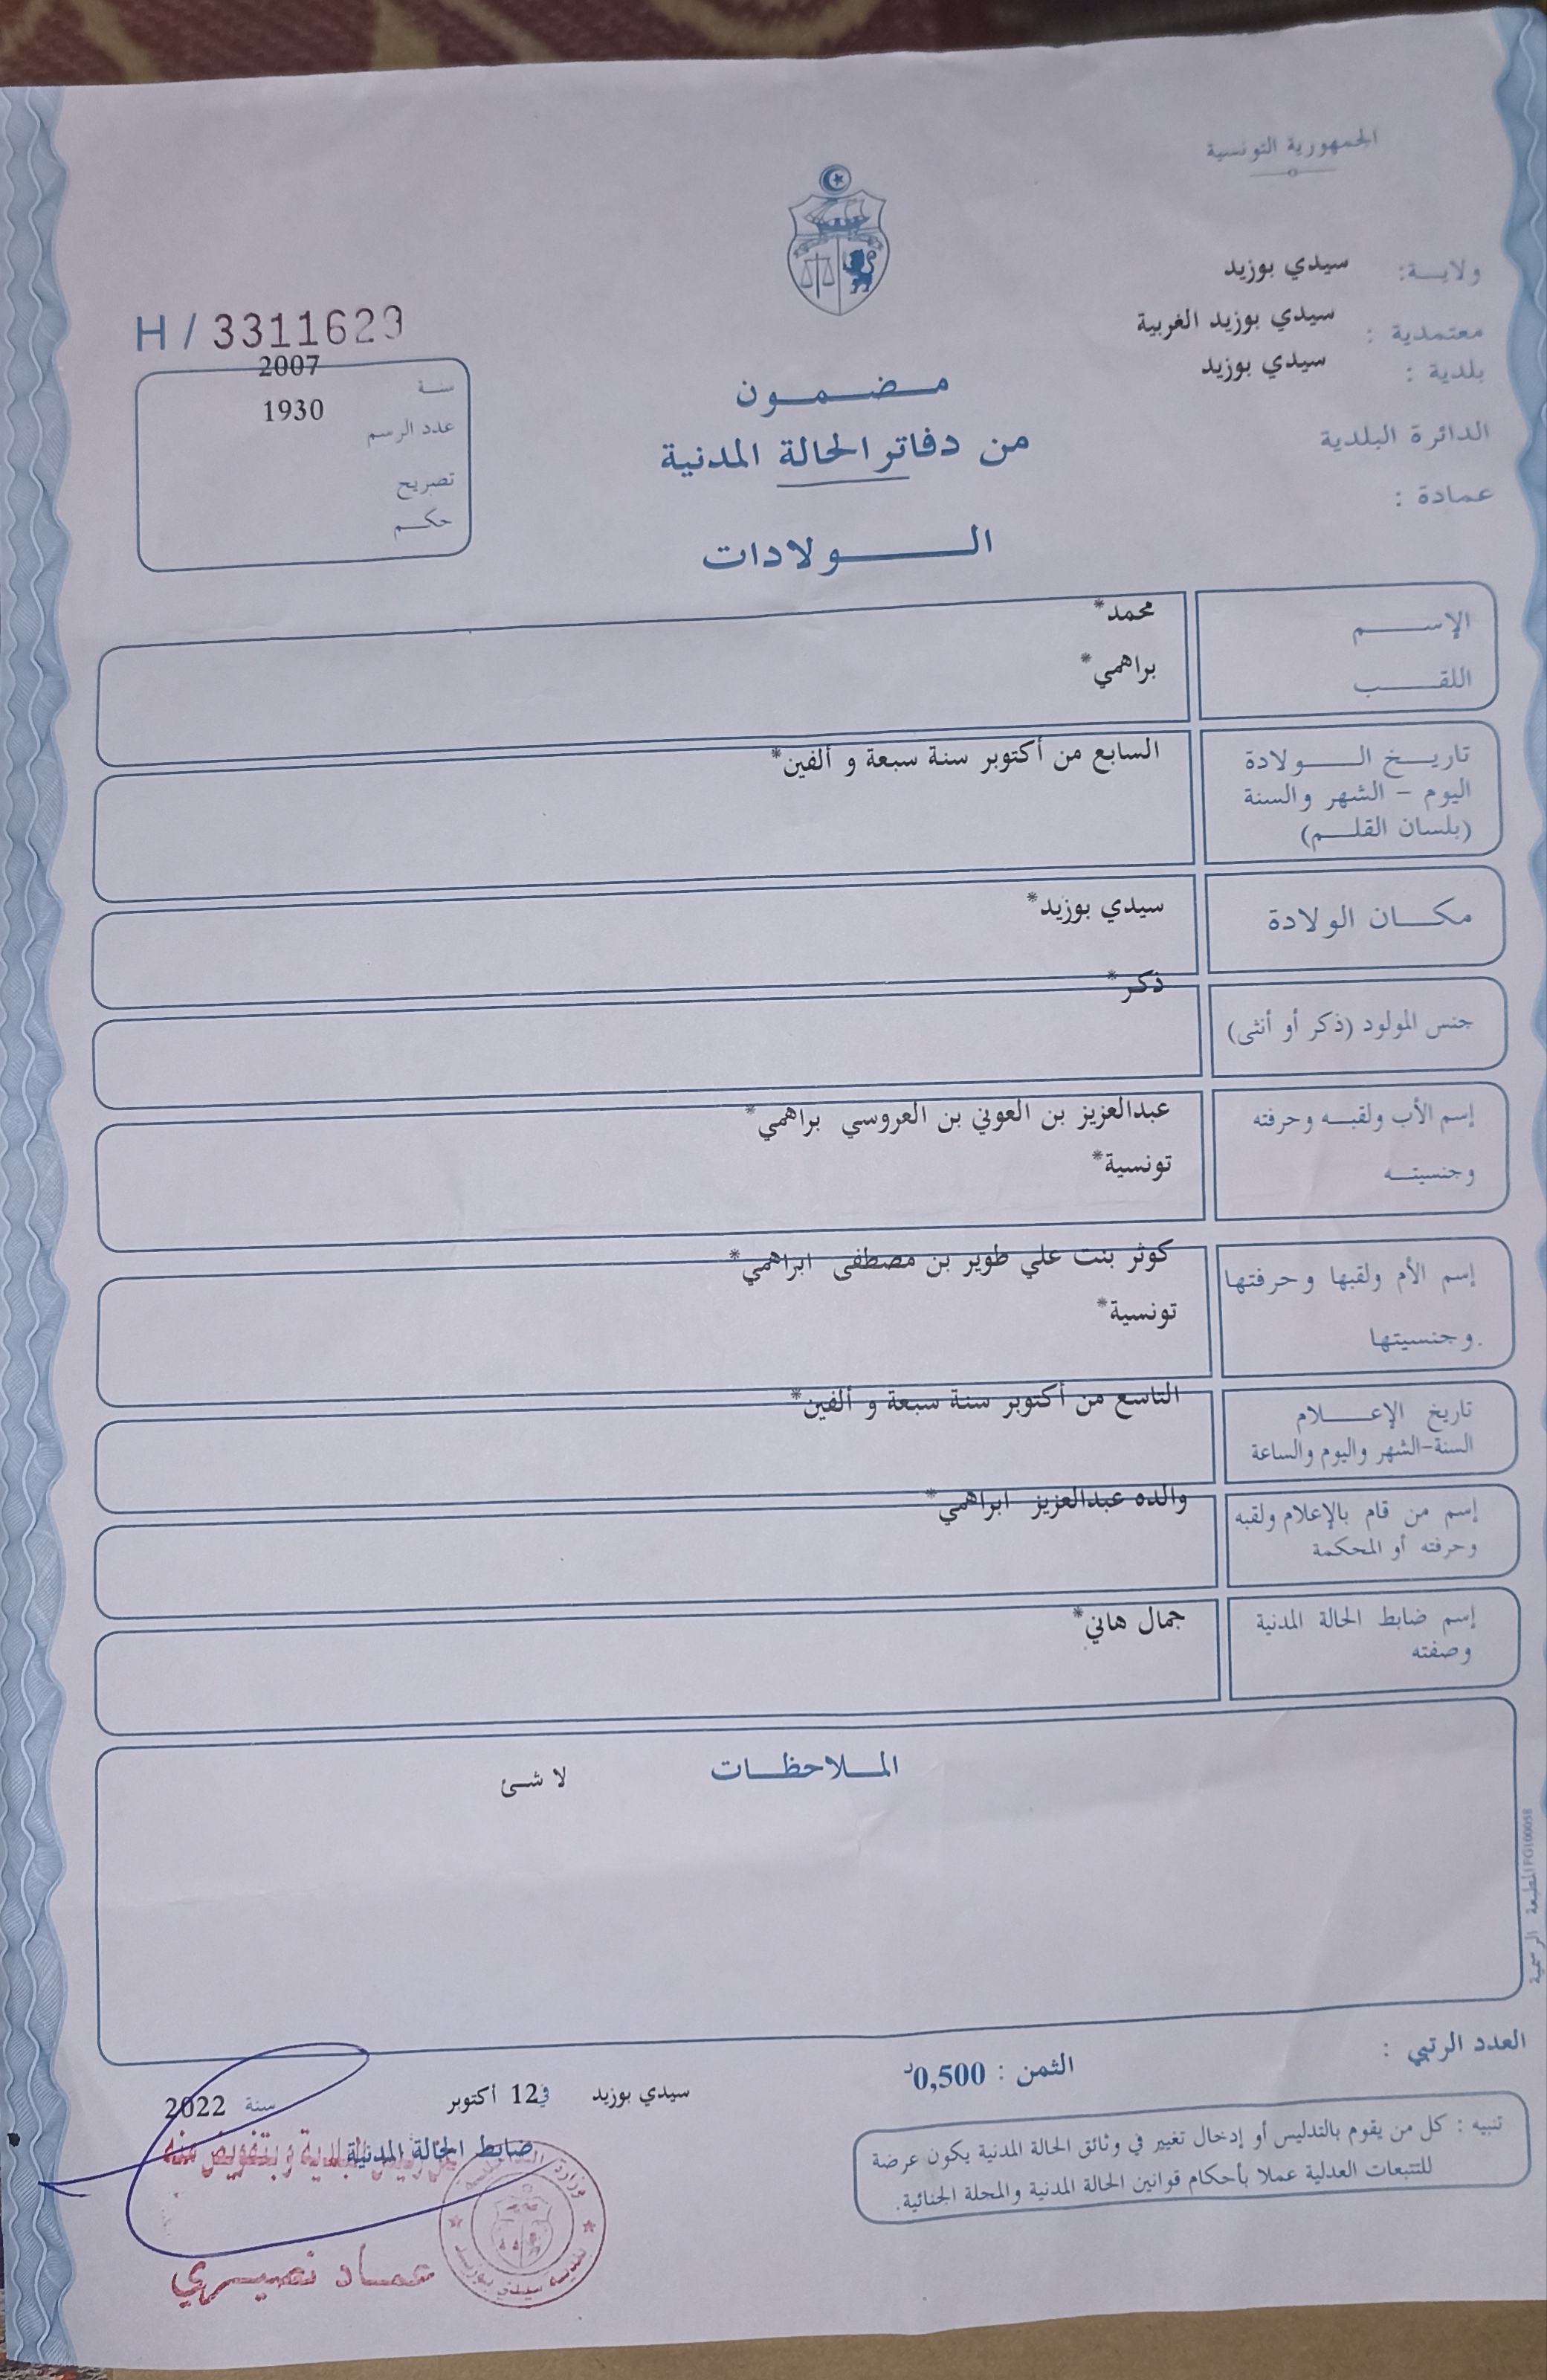 الجمهورية التونسية
ولايـــة: سيدي بوزيد
معتمدية : سيدي بوزيد الغربية
بلدية : سيدي بوزيد
الدائرة البلدية
عمادة :
H / 3311629
سنة 2007
عدد الرسم 1930
تصريح
حكـــم
مـــضـــمـــون
من دفاتر الحالة المدنية
الـــــولادات
الإســـــم محمد*
اللقـــــب براهمي*
تاريـــخ الـــــولادة السابع من أكتوبر سنة سبعة و ألفين*
اليوم – الشهر والسنة
(بلسان القلـــم)
مكـــان الولادة سيدي بوزيد*
جنس المولود (ذكر أو أنثى) ذكر*
إسم الأب ولقبـــه وحرفته عبدالعزيز بن العوني بن العروسي براهمي*
وجنسيتـــه تونسية*
إسم الأم ولقبها وحرفتها كوثر بنت علي طوير بن مصطفى ابراهمي*
وجنسيتها. تونسية*
تاريخ الإعـــــلام التاسع من أكتوبر سنة سبعة و ألفين*
السنة-الشهر واليوم والساعة
إسم من قام بالإعلام ولقبه والده عبدالعزيز ابراهمي*
وحرفته أو المحكمة
إسم ضابط الحالة المدنية جمال هاني*
وصفته
المـــلاحظـــات لا شئ
المطبعة الرسمية
العدد الرتبي :
الثمن : 0,500د
سيدي بوزيد في 12 أكتوبر سنة 2022
ضابط الحالة المدنية
تنبيه : كل من يقوم بالتدليس أو إدخال تغيير في وثائق الحالة المدنية يكون عرضة
للتتبعات العدلية عملا بأحكام قوانين الحالة المدنية والمجلة الجنائية.
البلدية وبتفويض منه
عمـاد نصيـــري
بلدية سيدي بوزيد